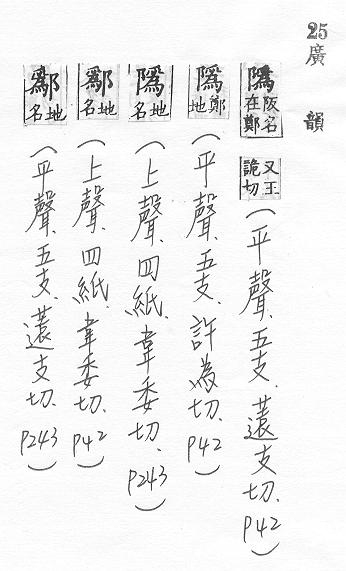 25 廣韻
隖 阪名在鄭 又王詭切(平聲、五支、薳支切、P42)
隖 鄭地(平聲、五支、許為切、P42)
隖 地名(上聲、四紙、韋委切、P243)
鄬 地名(上聲、四紙、韋委切、P42)
鄬 地名(平聲、五支、薳支切、P243)